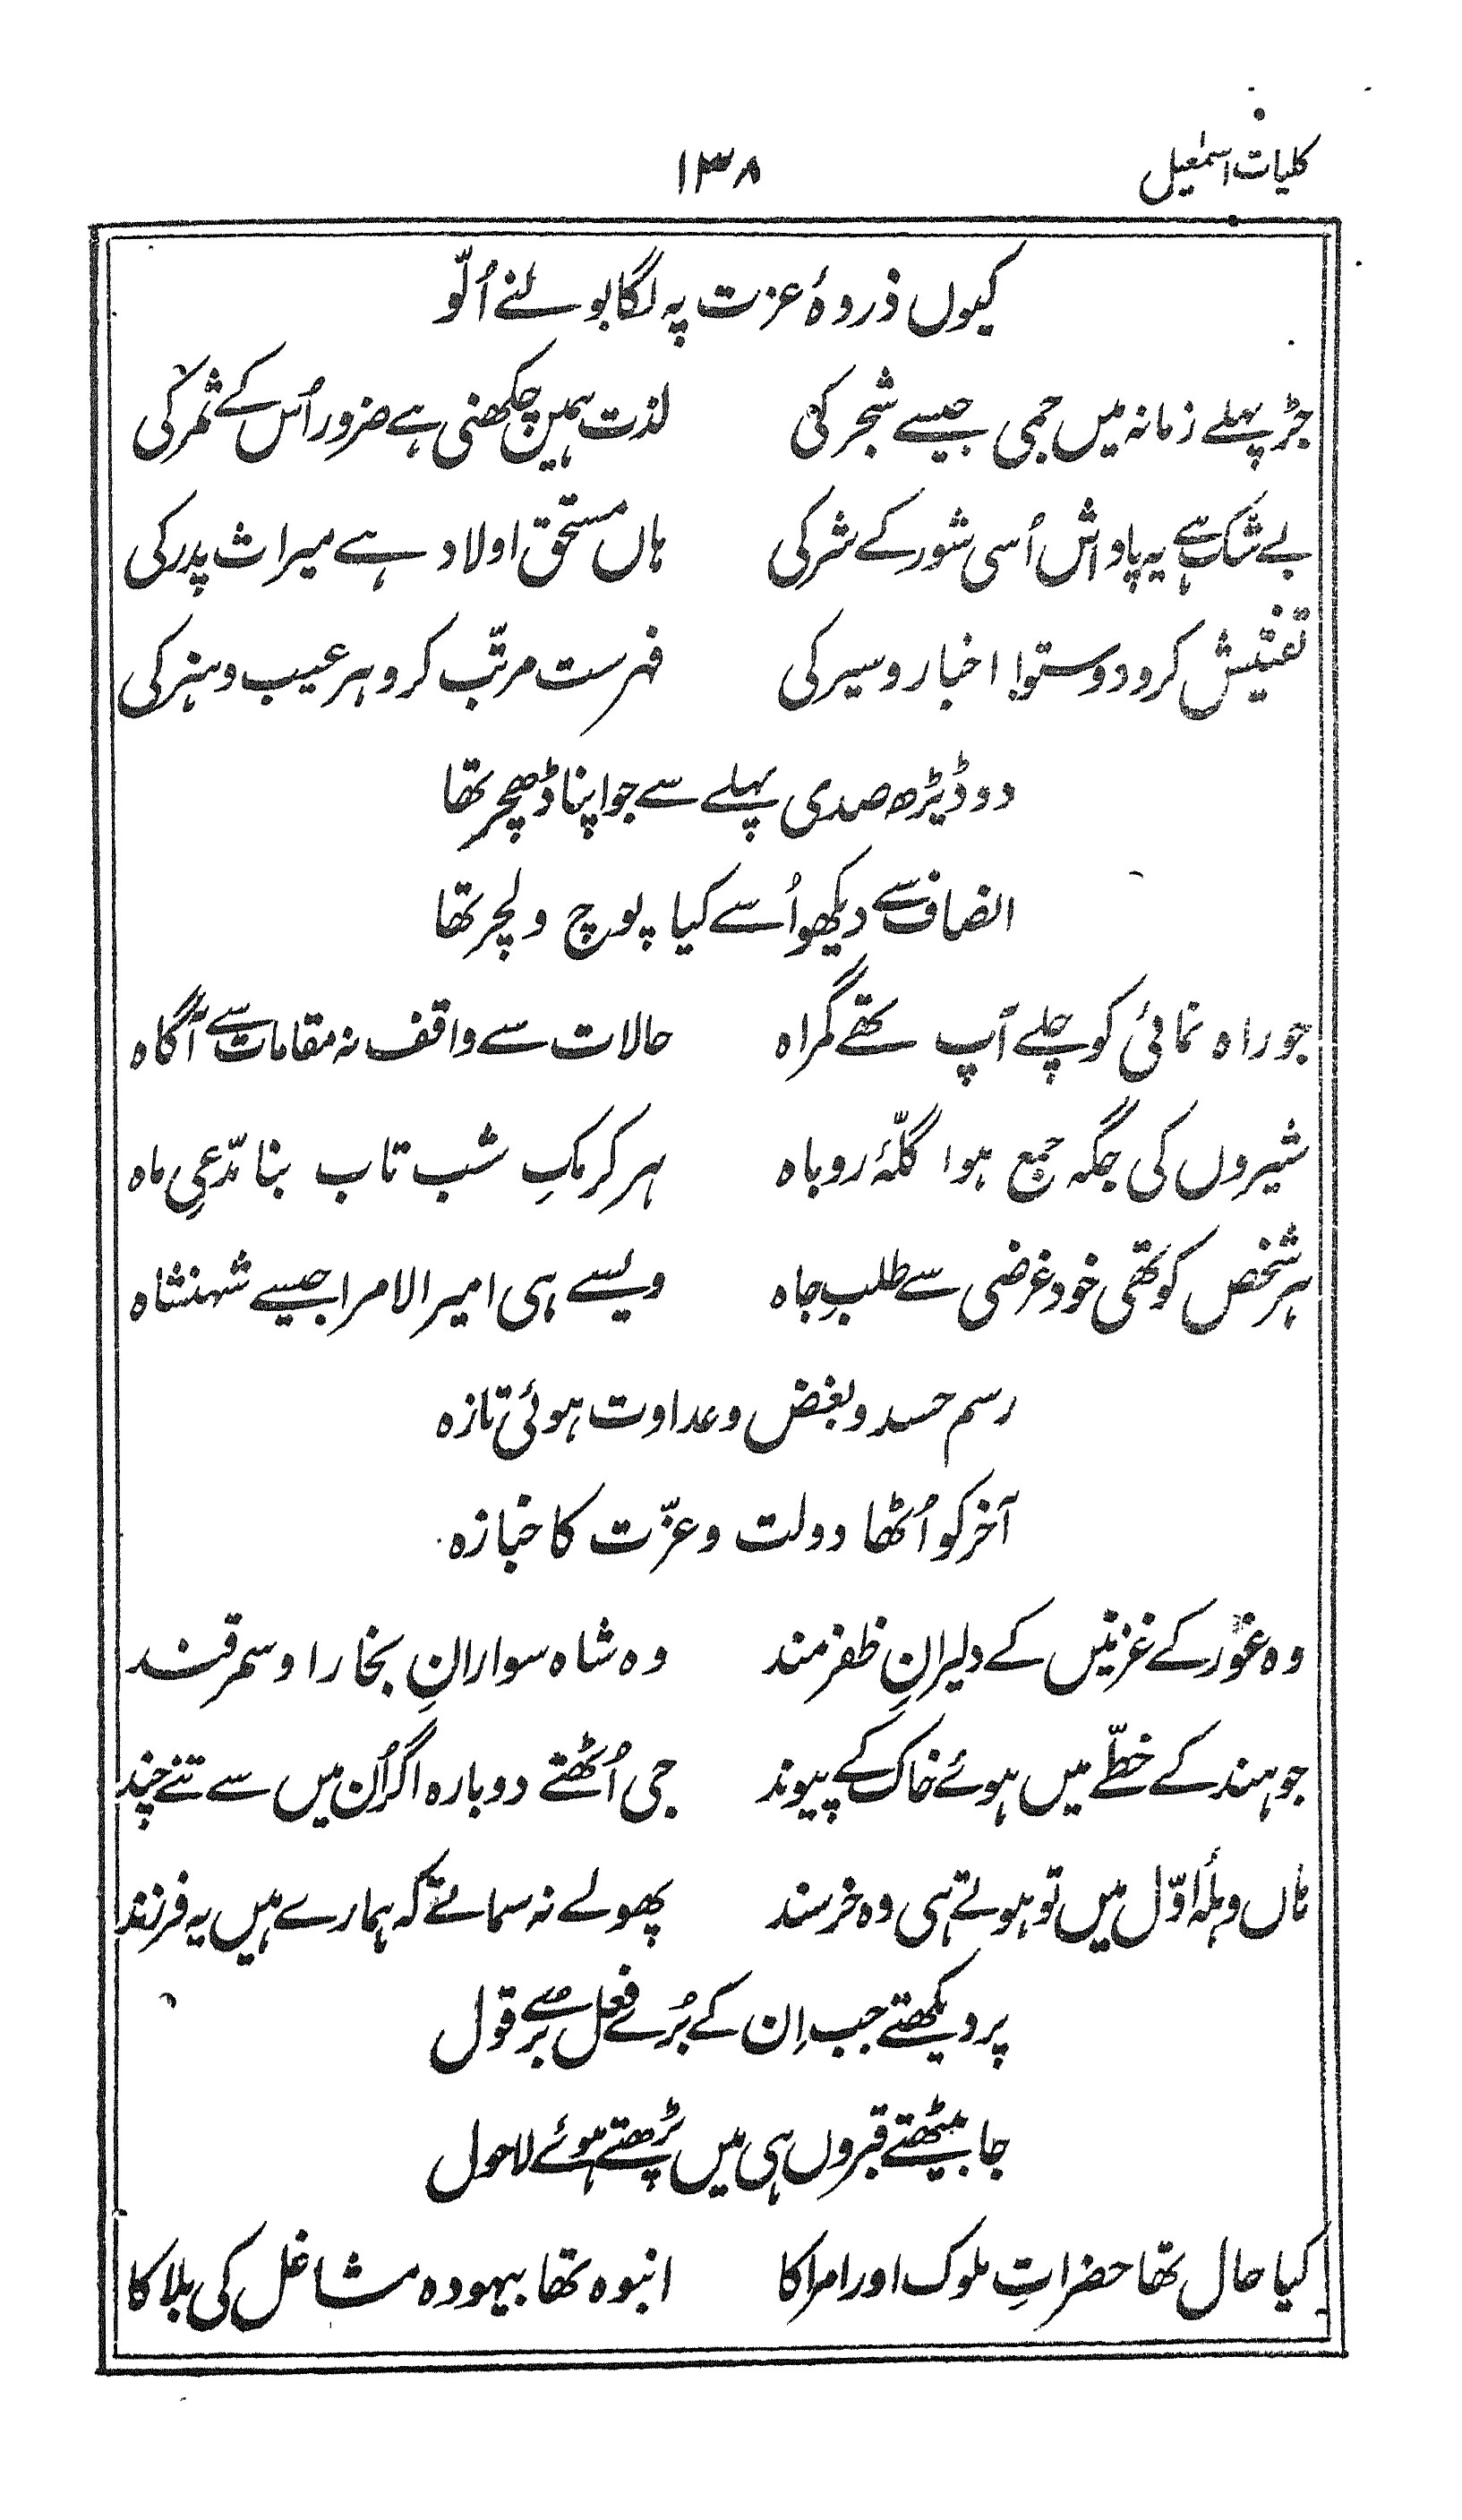 کلیات اسمٰعیل ۱۳۸
کیوں ذروۂ عزت پہ لگا بولنے اُلّو
جڑ پہلے زمانہ میں جمی جیسے شجر کی لذت ہمیں چکھنی ہے ضرور اُس کے ثمر کی
بے شک ہے یہ پاداش اُسی شور کے شر کی ہاں مستحق اولاد ہے میراث پدر کی
تفتیش کرو دوستو! اخبار و سیر کی فہرست مرتّب کرو ہر عیب و ہنر کی
دو ڈیڑھ صدی پہلے سے جو اپنا ڈھچر تھا
انصاف سے دیکھو اُسے کیا پوچ و لچر تھا
جو راہ نمائی کو چلے آپ تھے گمراہ حالات سے واقف نہ مقامات سے آگاہ
شیروں کی جگہ جمع ہوا گلّۂ روباہ ہر کرمکِ شب تاب بنا مدّعیِ ماہ
ہر شخص کو تھی خود غرضی سے طلبِ جاہ ویسے ہی امیر الامرا جیسے شہنشاہ
رسم حسد و بغض و عداوت ہوئی تازہ
آخر کو اُٹھا دولت و عزّت کا جنازہ
وہ غور کے غزنیں کے دلیرانِ ظفرمند وہ شاہ سوارانِ بخارا و سمرقند
جو ہند کے خطّے میں ہوئے خاک کے پیوند جی اُٹھتے دوبارہ اگر اُن میں سے تنے چند
ہاں وہلۂ اوّل میں تو ہوتے ہی وہ خرسند پھولے نہ سماتے کہ ہمارے ہیں یہ فرزند
پر دیکھتے جب اِن کے بُرے فعل بُرے قول
جا بیٹھتے قبروں ہی میں پڑھتے ہوئے لاحول
کیا حال تھا حضراتِ ملوک اور امرا کا انبوہ تھا بیہودہ مشاغل کی بلا کا